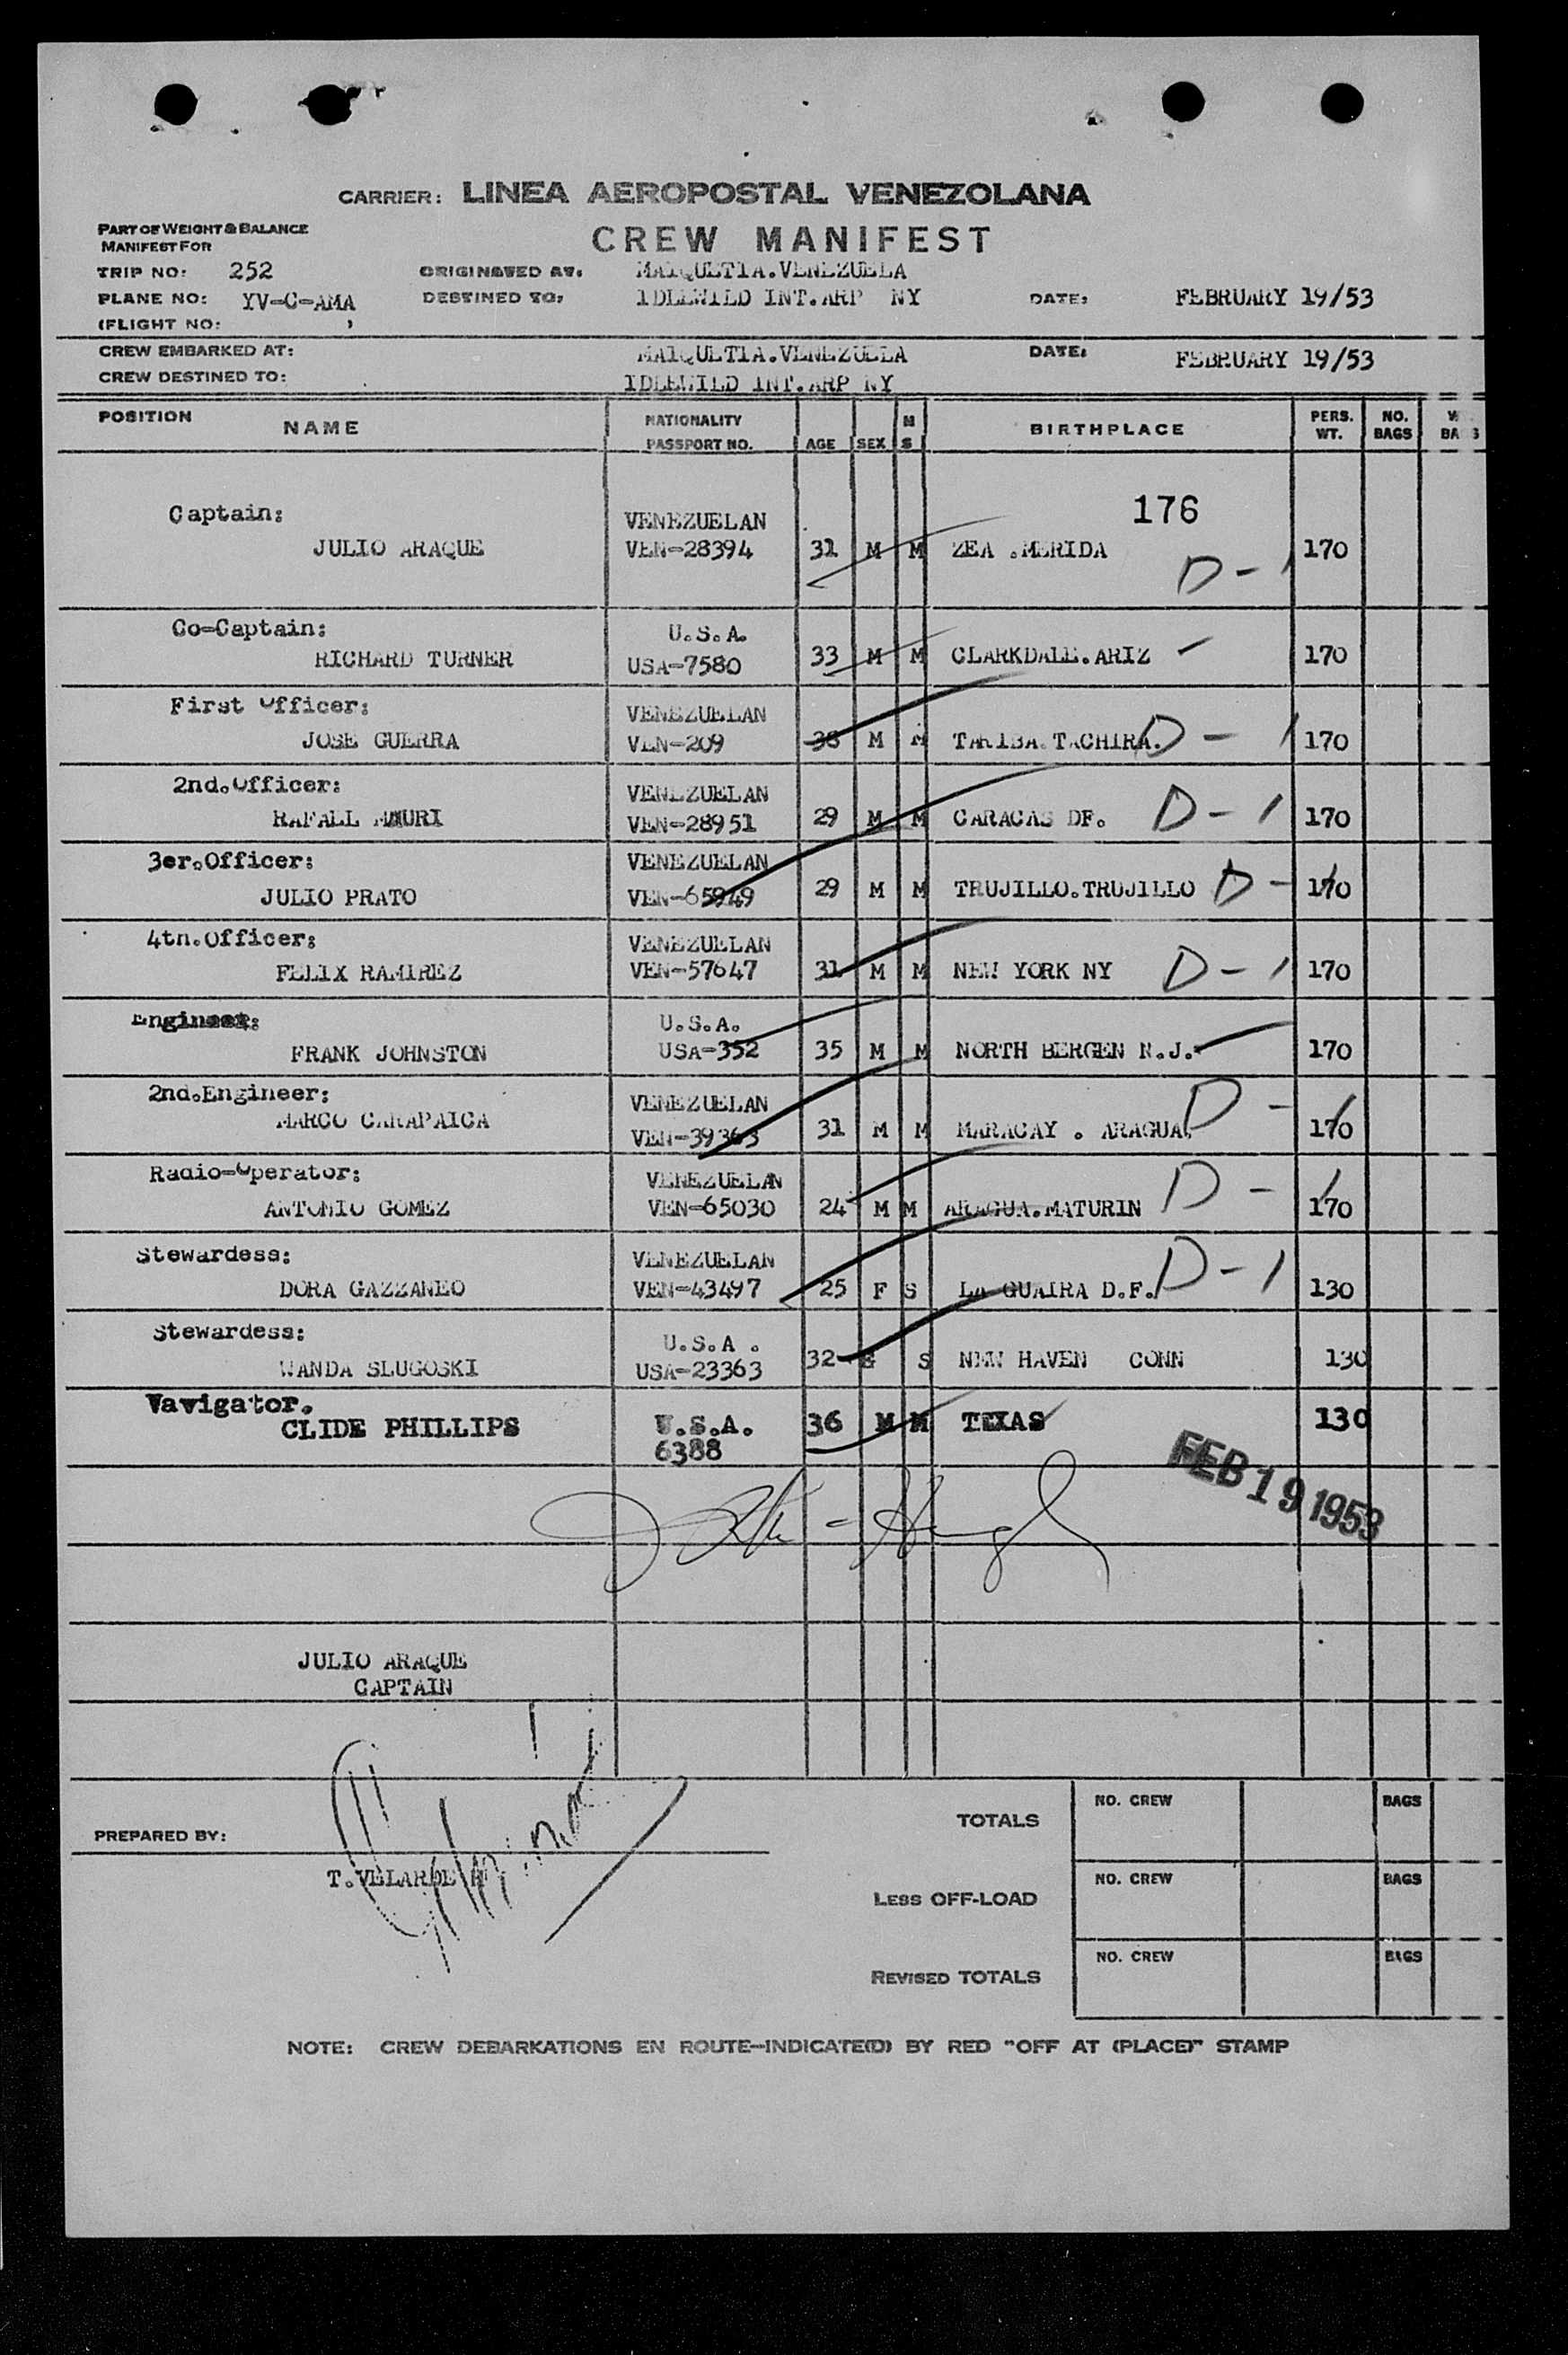 CARRIER: LINEA AEROPOSTAL VENEZOLANA
PART OF WEIGHT & BALANCE
MANIFEST FOR
CREW MANIFEST
TRIP NO: 252 ORIGINATED AT: MAIQUETIA.VENEZUELA
PLANE NO: YV-C-AMA DESTINED TO: IDLEWILD INT.ARP NY DATE: FEBRUARY 19/53
(FLIGHT NO: )
CREW EMBARKED AT: MAIQUETIA.VENEZUELA DATE: FEBRUARY 19/53
CREW DESTINED TO: IDLEWILD INT.ARP NY
POSITION NAME NATIONALITY PASSPORT NO. AGE SEX M S BIRTHPLACE PERS. WT. NO. BAGS
176
Captain: VENEZUELAN
JULIO ARAQUE VEN-28394 31 M M ZEA .MERIDA D-1 170
Co-Captain: U.S.A.
RICHARD TURNER USA-7580 33 M M CLARKDALE.ARIZ 170
First Officer: VENEZUELAN
JOSE GUERRA VEN-209 M M TARIBA.TACHIRA. D-1 170
2nd.Officer: VENEZUELAN
RAFAEL MAURI VEN-28951 29 M M CARACAS DF. D-1 170
3er.Officer: VENEZUELAN
JULIO PRATO VEN-65949 29 M M TRUJILLO.TRUJILLO D-1 170
4tn.Officer: VENEZUELAN
FELIX RAMIREZ VEN-57647 31 M M NEW YORK NY D-1 170
U.S.A.
FRANK JOHNSTON USA-352 35 M M NORTH BERGEN N.J. 170
2nd.Engineer: VENEZUELAN
MARCO CARAPAICA VEN-39363 31 M M MARACAY . ARAGUA. D-1 170
Radio-Operator: VENEZUELAN
ANTONIO GOMEZ VEN-65030 24 M M ARAGUA.MATURIN D-1 170
Stewardess: VENEZUELAN
DORA GAZZANEO VEN-43497 25 F S LA GUAIRA D.F. D-1 130
Stewardess: U.S.A .
WANDA SLUGOSKI USA-23363 32 S NEW HAVEN CONN 130
Navigator.
CLIDE PHILLIPS U.S.A. 36 M M TEXAS 130
6388
FEB 19 1953
JULIO ARAQUE
CAPTAIN
PREPARED BY:
T.VELARDE
TOTALS NO. CREW BAGS
LESS OFF-LOAD NO. CREW BAGS
REVISED TOTALS NO. CREW BAGS
NOTE: CREW DEBARKATIONS EN ROUTE-INDICATE(D) BY RED "OFF AT (PLACE)" STAMP